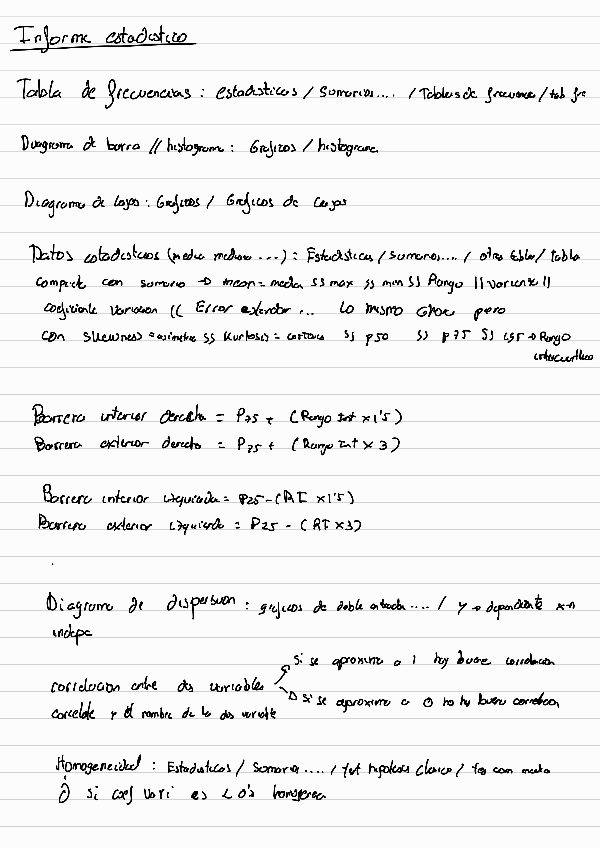 Informe estadistico
Tabla de frecuencias : estadisticos / Sumarios.... / Tablas de frecuencia / tab fre
Diagrama de barra // histograma : Graficos / histograma
Diagrama de cajas : Graficos / Graficos de cajas
Datos estadisticos (media mediana ...) : Estadisticas / Sumarios.... / otras tablas / tabla
compacta con sumario → mean = media SS max SS min SS Rango || varianza ||
coeficiente variacion || Error estandar ... Lo mismo pero
con skewness = asimetria SS Kurtosis = SS p50 SS p75 SS iqr → Rango
intercuartilico
Barrera interior derecha = P75 + (Rango Int x 1'5)
Barrera exterior derecha = P75 + (Rango Int x 3)
Barrera interior izquierda = P25 - (RI x 1'5)
Barrera exterior izquierda = P25 - (RI x 3)
Diagrama de dispersion : graficos de doble entrada .... / y → dependiente x →
indepe
Si se aproxima a 1 hay buena correlacion
correlacion entre dos variables
Si se aproxima a 0 no hay buena correlacion
correlate y el nombre de la dos variable
Homogeneidad : Estadisticos / Sumarios .... / test hipotesis clasico / tes con media
o si coef vari es < 0'5 homogenea